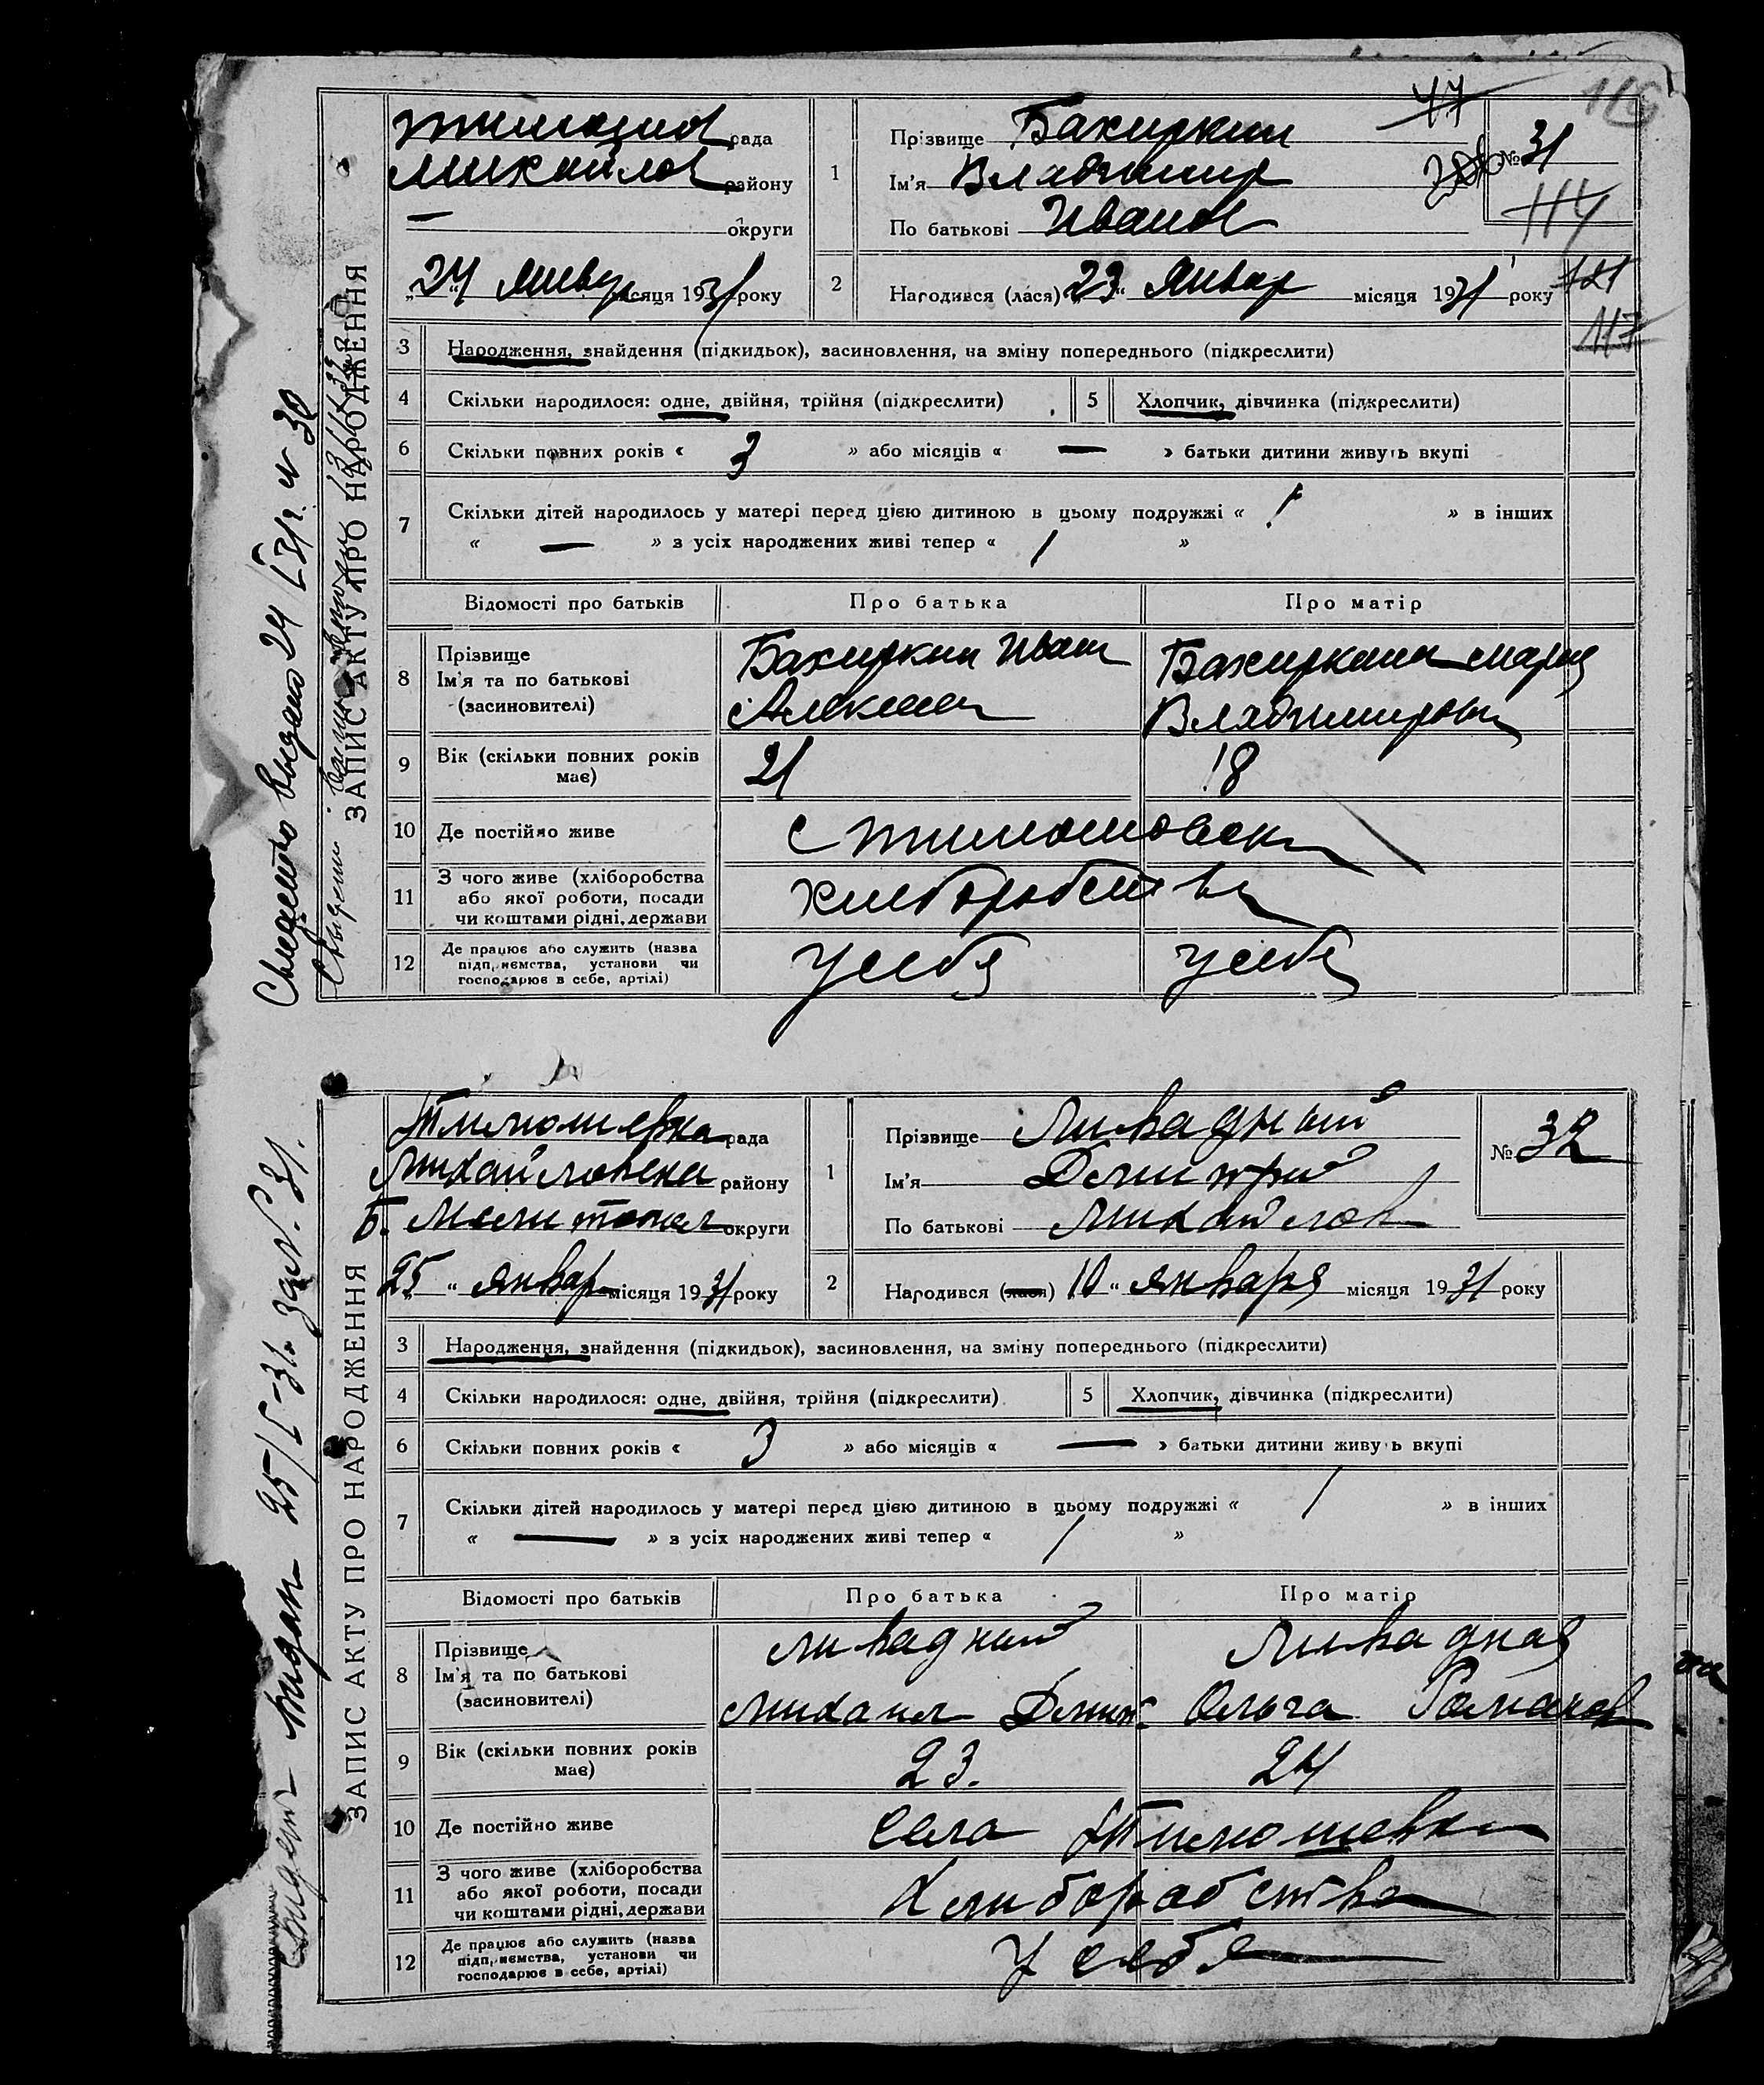 116
47
ЗАПИС АКТУ ПРО НАРОДЖЕННЯ
Свидет-во выдано 24/I 31 г. N 30
рада
Михайлов району
— округи
„24“ январ місяця 1931 року
1
Прізвище Бахиркин
Ім'я Владимир
По батькові Иванов
№ 31
114
121
117
2 Народився (лася) „23“ январ місяця 1931 року
3 Народження, знайдення (підкидьок), засиновлення, на зміну попереднього (підкреслити)
4 Скільки народилося: одне, двійня, трійня (підкреслити) 5 Хлопчик, дівчинка (підкреслити)
6 Скільки повних років « 3 » або місяців « — » батьки дитини живуть вкупі
7 Скільки дітей народилось у матері перед цією дитиною в цьому подружжі « 1 » в інших
« — » з усіх народжених живі тепер « 1 »
Відомості про батьків Про батька Про матір
8 Прізвище Ім'я та по батькові (засиновителі)
Бахиркин Иван
Алексеев
Бахиркина Мария
Владимировн
9 Вік (скільки повних років має) 21 18
10 Де постійно живе с Тимошовки
11 З чого живе (хліборобства або якої роботи, посади чи коштами рідні, держави
хлеборобства
12 Де працює або служить (назва підприємства, установи чи господарює в себе, артілі)
у себя у себя
ЗАПИС АКТУ ПРО НАРОДЖЕННЯ
Свидет- видан 25/I-31. за N. 31.
Тимошевка рада
Михайловска району
Б. Мелитопол округи
25 “ январ місяця 1931 року
1
Прізвище Ливадный
Ім'я Дмитрий
По батькові Михайлов
№ 32
2 Народився (лася) „10“ января місяця 1931 року
3 Народження, знайдення (підкидьок), засиновлення, на зміну попереднього (підкреслити)
4 Скільки народилося: одне, двійня, трійня (підкреслити) 5 Хлопчик, дівчинка (підкреслити)
6 Скільки повних років « 3 » або місяців « — » батьки дитини живуть вкупі
7 Скільки дітей народилось у матері перед цією дитиною в цьому подружжі « 1 » в інших
« — » з усіх народжених живі тепер « 1 »
Відомості про батьків Про батька Про матір
8 Прізвище Ім'я та по батькові (засиновителі)
Ливадний
Михаил Дмит.
Ливадная
Ольга Романов
9 Вік (скільки повних років має) 23. 24
10 Де постійно живе села Тимошевки
11 З чого живе (хліборобства або якої роботи, посади чи коштами рідні, держави
Хлиборабства
12 Де працює або служить (назва підприємства, установи чи господарює в себе, артілі)
У себя